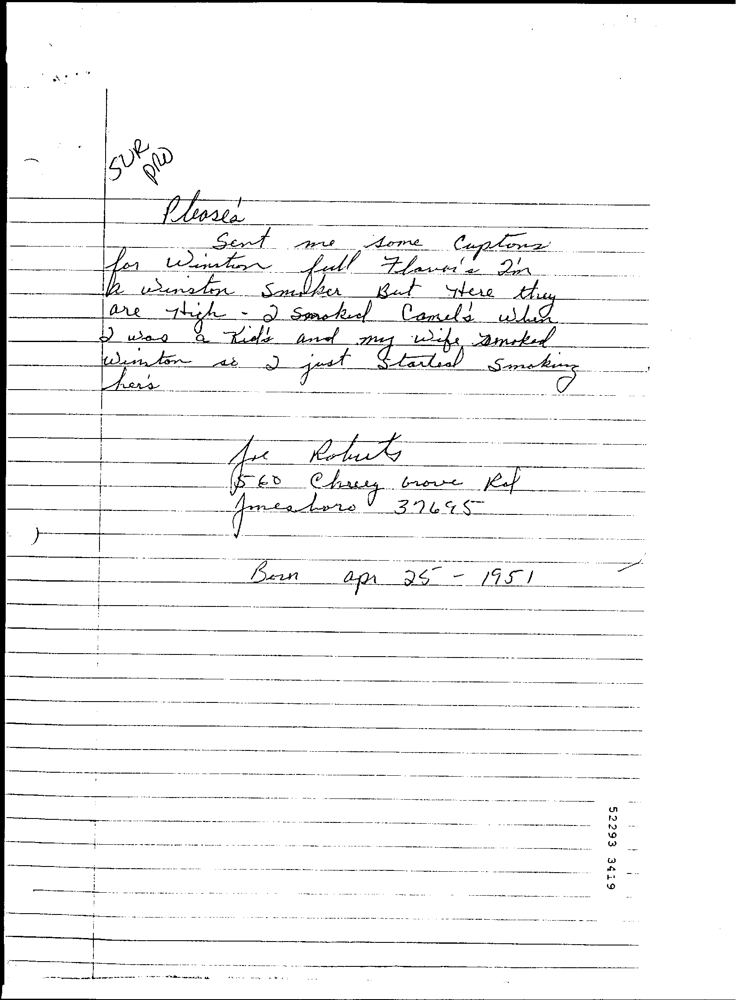 SUR
PRO
Please's
Sent me some Cuptons
for Winston full Flavor's I'm
a winston Smoker But Here they
are High - I smoked Camel's when
I was a Kid's and my wife smoked
Winston so I just Started Smoking
her's
Joe Roberts
560 Cherry Grove Rd
Jonesboro 37695
Born apr 25 - 1951
52293 3419